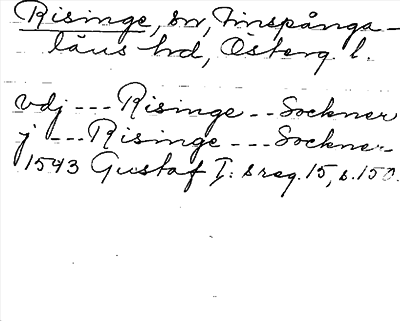 Risinge, sn, Finspånga-
läns hd, Österg. l.
vdj --- Risinge -- Sockner
j --- Risinge --- Sockner-
1543 Gustaf I: s reg. 15, s. 150.